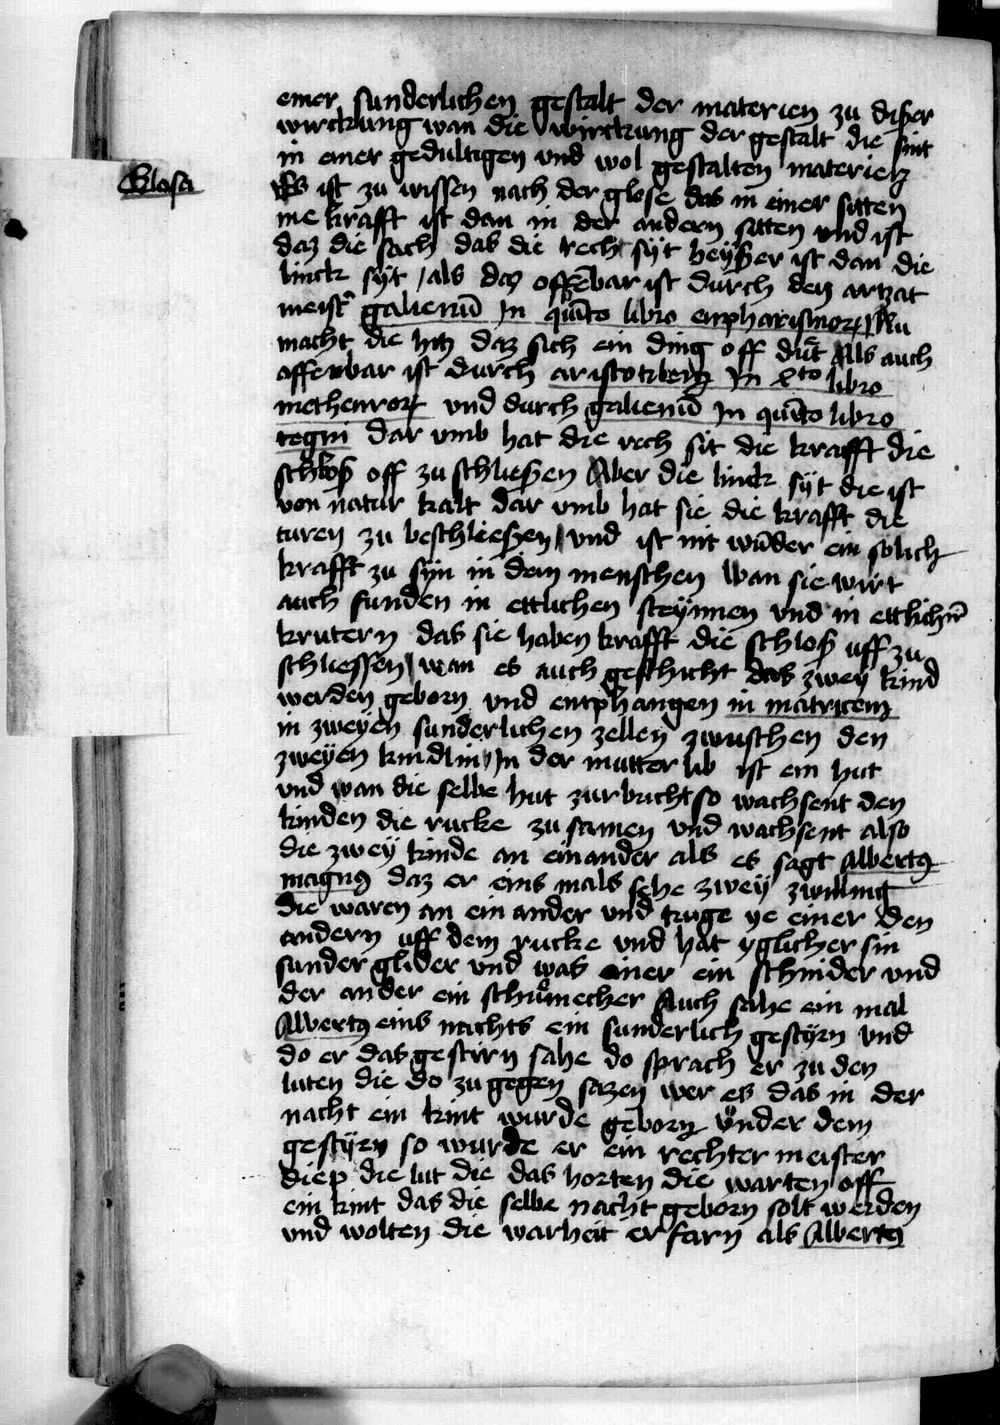 einer sunderlichen gestalt der materien zu dißer
wirckung wan die wirckung der gestalt die sint
in einer gedultigen und wol gestalten materien
Glosa
Es ist zu wissen nach der glose das in einer sitten
me krafft ist dan in der andern sitten und ist
daz die sach das die recht syt heyßer ist dan die
linck syt / als daz offēbar ist durch den artzat
meistˀ galienū In quīto libro enphorismorꝝ Nu
macht die hitz daz sich ein ding off dut Als auch
offenbar ist durch aristotilem In xto libro
metheurorꝝ und durch galienū In quīto libro
tegni dar umb hat die rech sit die krafft die
schloß off zu schließen Aber die linck syt die ist
von natur kalt dar umb hat sie die krafft die
turen zu beschließen / und ist nit wūder ein solich
krafft zu syn in dem menschen Wan sie wirt
auch funden in ettlichen steynnen und in ettlichn̄
krutern das sie haben krafft die schloß uff zu
schliessen / wan es auch geschicht das zwey kind
werden geborn und entphangen in matricem
in zweyen sunderlichen zellen zwuschen den
zweyen kindlin / In der mutter lib ist ein hut
und wan die selbe hut zurbricht so wachsent den
kinden die rucke zu samen und wachsent also
die zwey kinde an einander als es sagt Albertꝰ
magnꝰ daz er eins mals sehe zwey zwilling
die waren an ein ander und truge ye einer den
andern uff dem rucke und hat yglicher sin
sunder glider und was einer ein schnider und
der ander ein schůmecher Auch sahe ein mal
Albertꝰ eins nachts ein sunderlich gestyrn und
do er das gestirn sahe do sprach er zu den
luten die do zu gegen sazen wer es das in der
nacht ein kint wurde geborn under dem
gestyrn so wurde er ein rechter meister
diep die lut die das horten die warten off
ein kint das die selbe nacht geborn solt werden
und wolten die warheit erfarn als Albertꝰ